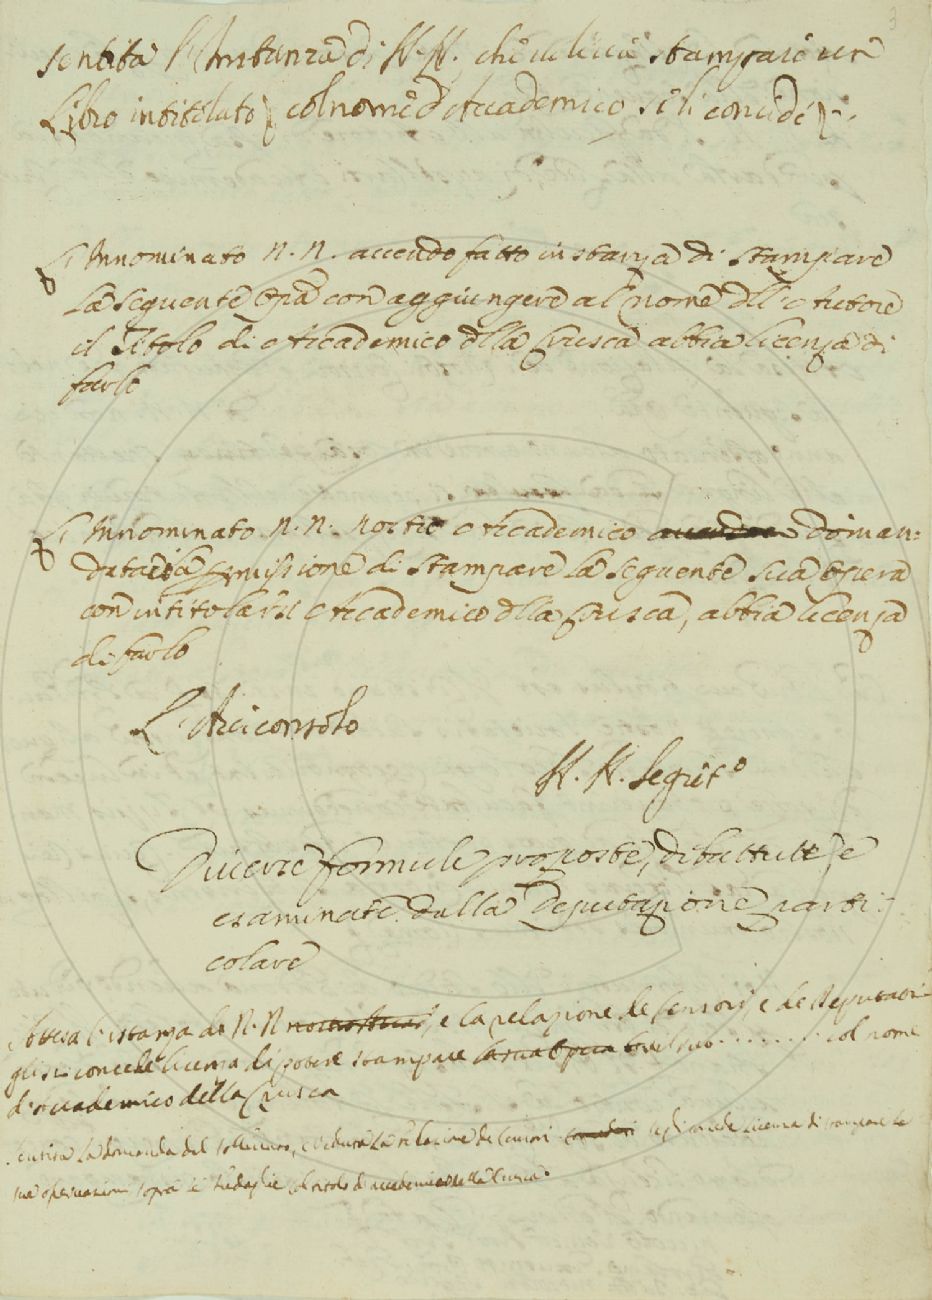 3
Sentita l'Instanza di N. N. che vuole stampare un
Libro intitolato col nome d'Accademico si li concede
L'Innominato N. N. avendo fatto instanza di stampare
la seguente Opa con aggiungere al nome dll'Autore
il Titolo di Accademico dlla Crusca abbia licenza di
farlo
L'Innominato N. N. nostro Accademico doman:
data ci la pmissione di stampare la seguente sua opera
con intitolarsi Accademico dlla Crusca, abbia licenza
di farlo
L'Arciconsolo
N. N. Segret.o
Diverse formule proposte, dibattute, e
esaminate dalla Deputazione parti:
colare
Attesa l'istanza di N. N. e la relazione de Censori, e de Deputati
gli si concede licenza di potere stampare ........ col nome
d'Accademico della Crusca
Sentita la domanda del sollecito, e veduta la relazione de Censori se gli concede licenza di stampare le
sue osservazioni sopra le Medaglie col titolo di accademico della Crusca.